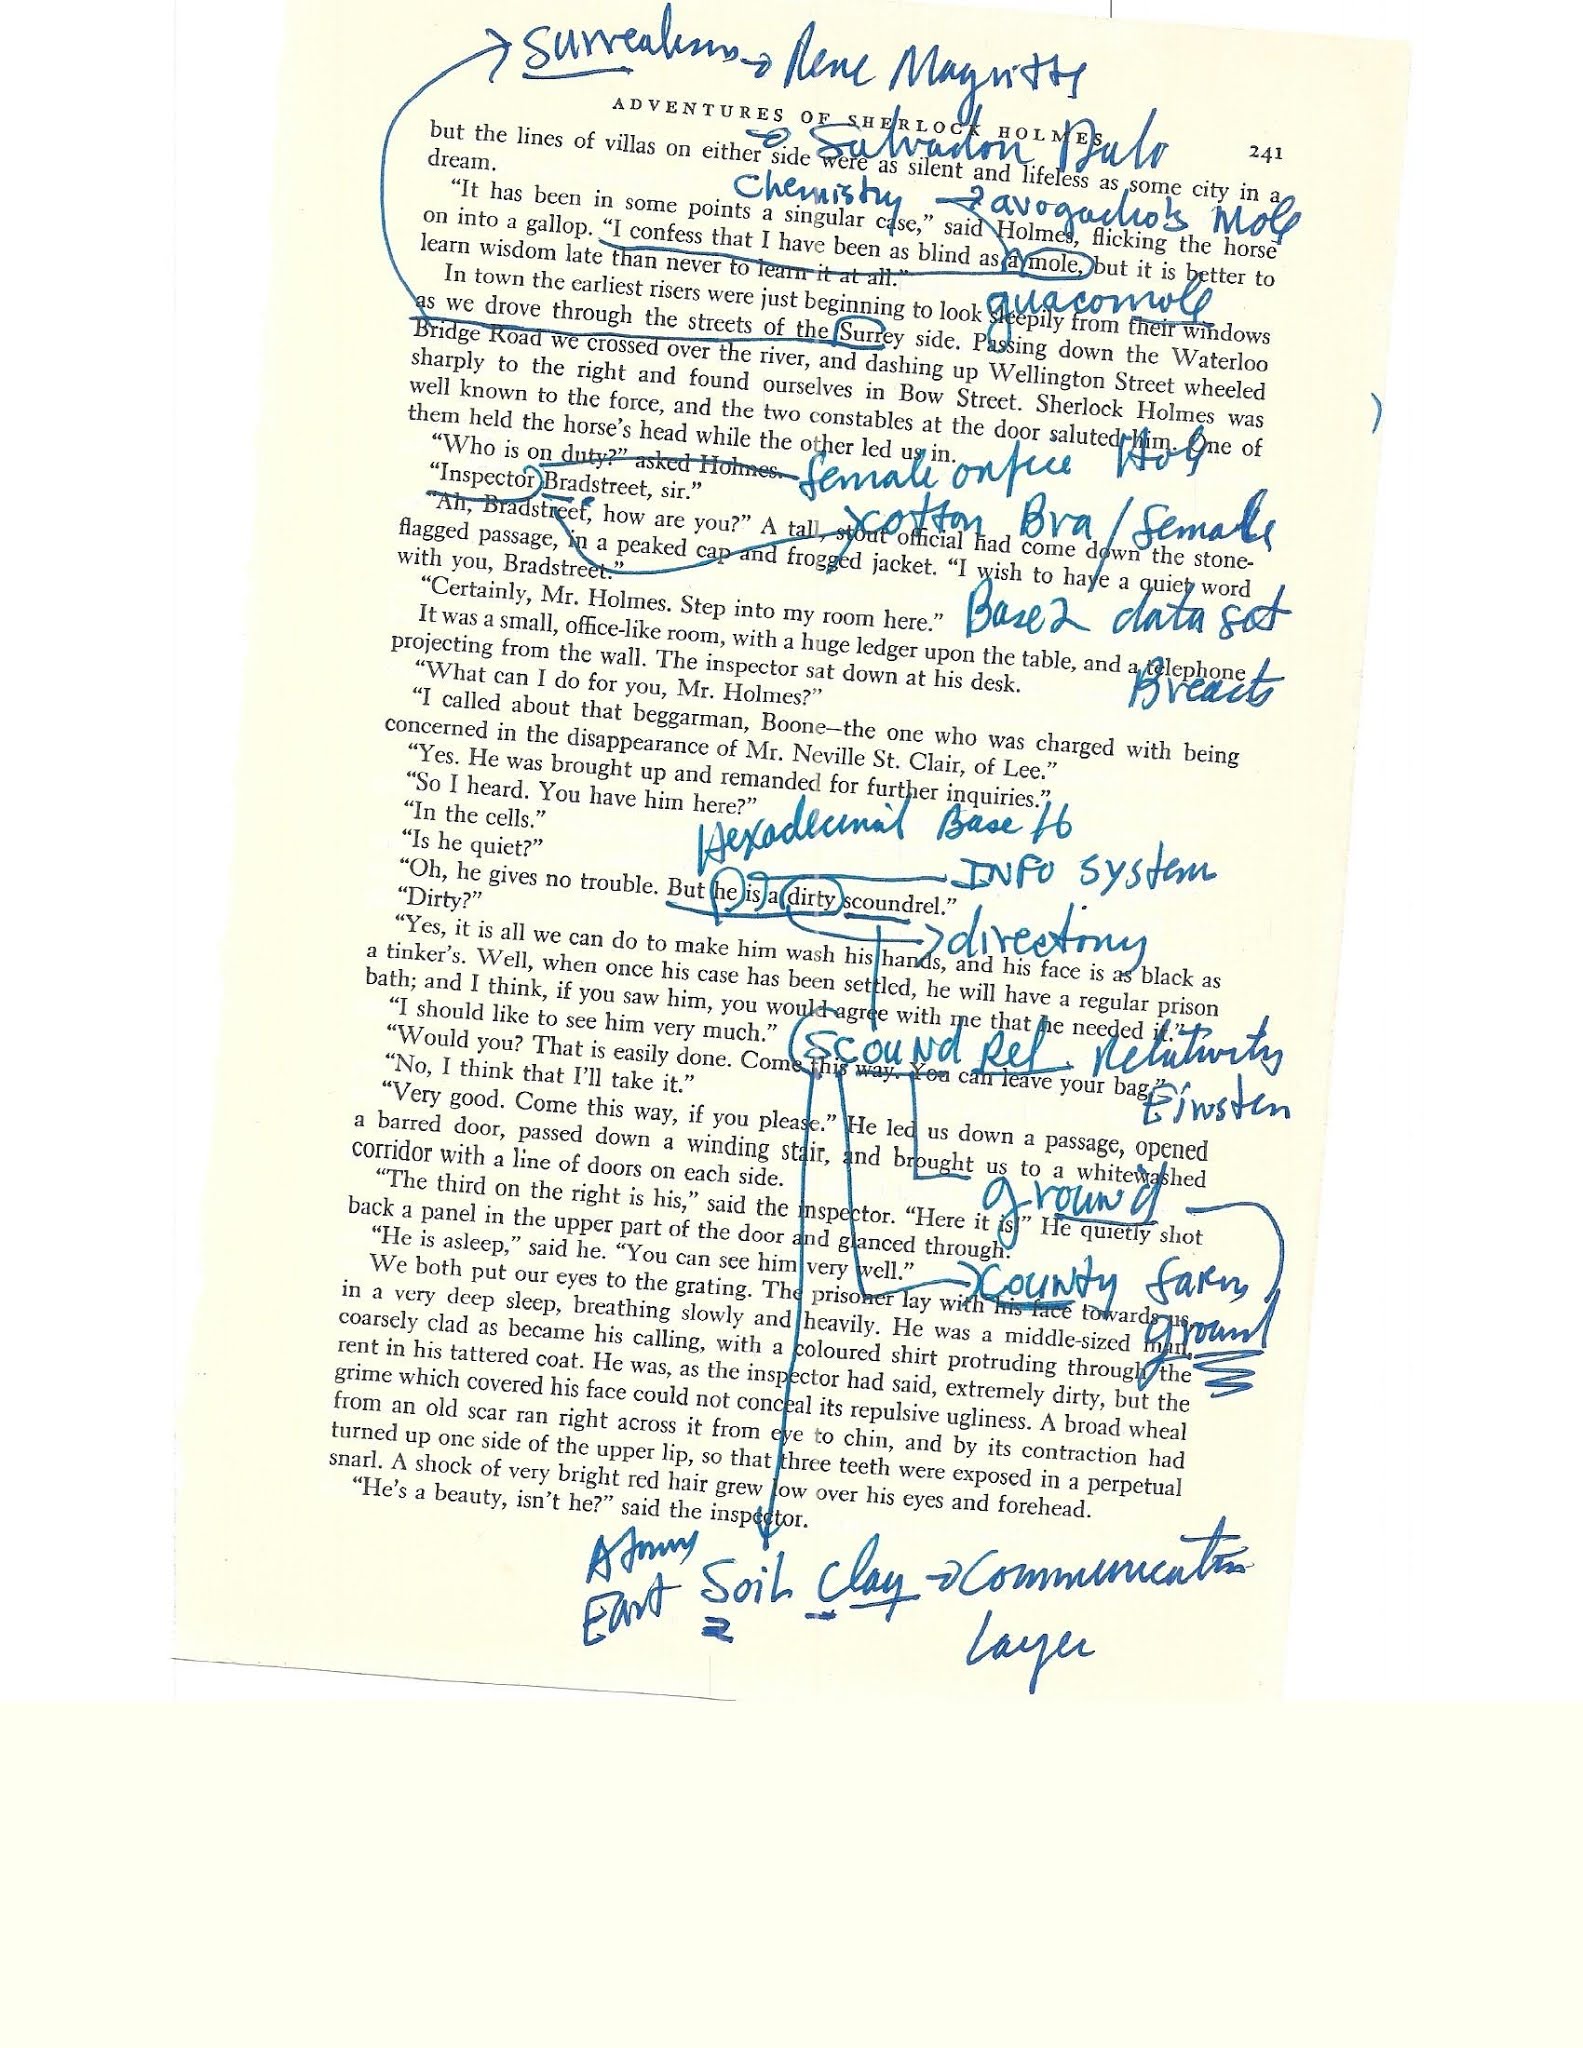 surrealism → Rene Magritte
ADVENTURES OF SHERLOCK HOLMES
241
→ Salvadon Dalo
but the lines of villas on either side were as silent and lifeless as some city in a
dream.
Chemistry → avogadro's Mole
“It has been in some points a singular case,” said Holmes, flicking the horse
on into a gallop. “I confess that I have been as blind as a mole, but it is better to
learn wisdom late than never to learn it at all.”
guacomole
In town the earliest risers were just beginning to look sleepily from their windows
as we drove through the streets of the Surrey side. Passing down the Waterloo
Bridge Road we crossed over the river, and dashing up Wellington Street wheeled
sharply to the right and found ourselves in Bow Street. Sherlock Holmes was
well known to the force, and the two constables at the door saluted him. One of
them held the horse's head while the other led us in.
“Who is on duty?” asked Holmes.
female orifice Hole
“Inspector Bradstreet, sir.”
cotton Bra / female
“Ah, Bradstreet, how are you?” A tall, stout official had come down the stone-
flagged passage, in a peaked cap and frogged jacket. “I wish to have a quiet word
with you, Bradstreet.”
“Certainly, Mr. Holmes. Step into my room here.”
Base 2 data set
It was a small, office-like room, with a huge ledger upon the table, and a telephone
projecting from the wall. The inspector sat down at his desk.
Breasts
“What can I do for you, Mr. Holmes?”
“I called about that beggarman, Boone—the one who was charged with being
concerned in the disappearance of Mr. Neville St. Clair, of Lee.”
“Yes. He was brought up and remanded for further inquiries.”
“So I heard. You have him here?”
“In the cells.”
Hexadecimal Base 16
“Is he quiet?”
INFO system
“Oh, he gives no trouble. But he is a dirty scoundrel.”
“Dirty?”
directory
“Yes, it is all we can do to make him wash his hands, and his face is as black as
a tinker's. Well, when once his case has been settled, he will have a regular prison
bath; and I think, if you saw him, you would agree with me that he needed it.”
“I should like to see him very much.”
SCOUNd Rel. Relativity
“Would you? That is easily done. Come this way. You can leave your bag.”
Einsten
“No, I think that I'll take it.”
“Very good. Come this way, if you please.” He led us down a passage, opened
a barred door, passed down a winding stair, and brought us to a whitewashed
corridor with a line of doors on each side.
ground
“The third on the right is his,” said the inspector. “Here it is!” He quietly shot
back a panel in the upper part of the door and glanced through.
“He is asleep,” said he. “You can see him very well.”
county farm
We both put our eyes to the grating. The prisoner lay with his face towards us,
in a very deep sleep, breathing slowly and heavily. He was a middle-sized man,
ground
coarsely clad as became his calling, with a coloured shirt protruding through the
rent in his tattered coat. He was, as the inspector had said, extremely dirty, but the
grime which covered his face could not conceal its repulsive ugliness. A broad wheal
from an old scar ran right across it from eye to chin, and by its contraction had
turned up one side of the upper lip, so that three teeth were exposed in a perpetual
snarl. A shock of very bright red hair grew low over his eyes and forehead.
“He's a beauty, isn't he?” said the inspector.
East Soil Clay → Communication
Layer